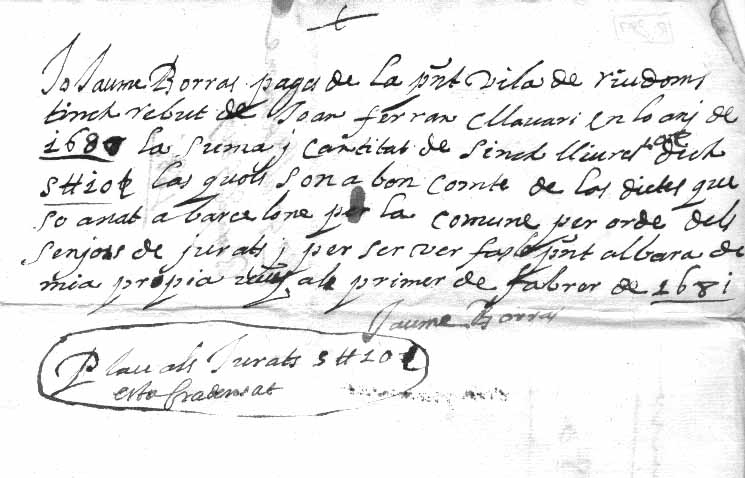 Jo Jaume Borras pages de la pñt vila de riudoms
tinch rebut de Joan ferran Clavari en lo anj de
1680 la suma j cantitat de sinch lliures deh
5 # 10 las quols son a bon comte de las dietes que
so anat a barcelone per la comune per orde dels
senjors de jurats j per ser ver fas lo pñt albara de
mia propia als primer de fabrer de 1681
Jaume Borras
Plau als Jurats 5 # 10
esta